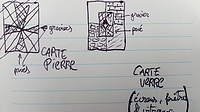 gravier
pavé
graviers
pavés
CARTE
PIERRE
CARTE
VERRE
écrans, fenêtre